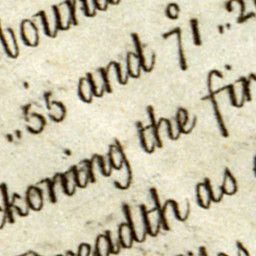 bound
„55 and 71° „2
koning the fir
readth as